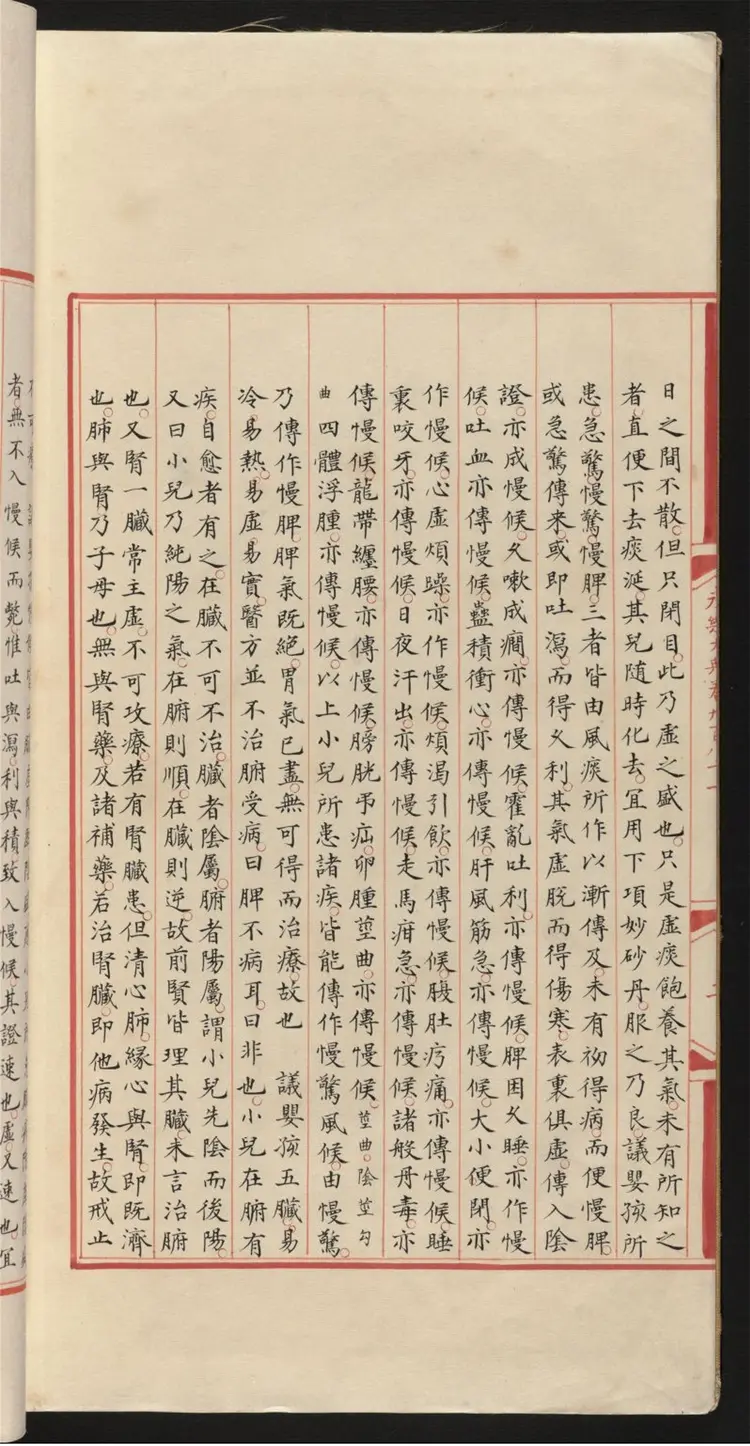 日之間不散但只閉目此乃虛之盛也只是虛痰飽養其氣未有所知之
者直便下去痰涎其兒隨時化去冝用下項妙砂丹服之乃良議嬰孩所
患急驚慢驚慢脾三者皆由風痰所作以漸傳及未有初得病而便慢脾
或急驚傳來或即吐瀉而得乆利其氣虛脫而得傷寒表裏俱虛傳入陰
證亦成慢候乆嗽成癎亦傳慢候霍亂吐利亦傳慢候脾困乆睡亦作慢
候吐血亦傳慢候蠱積衝心亦傳慢候肝風筋急亦傳慢候大小便閉亦
作慢候心虛煩躁亦作慢候煩渴引飲亦傳慢候腹肚疞痛亦傳慢候睡
裏咬牙亦傳慢候日夜汗出亦傳慢候走馬疳急亦傳慢候諸般丹毒亦
傳慢候龍帶纏腰亦傳慢候膀胱弔疝卵腫莖曲亦傳慢候莖曲陰莖勾
曲四體浮腫亦傳慢候以上小兒所患諸疾皆能傳作慢驚風候由慢驚
乃傳作慢脾脾氣既絕胃氣已盡無可得而治療故也 議嬰孩五臟易
冷易熱易虛易實醫方並不治腑受病曰脾不病耳曰非也小兒在腑有
疾自愈者有之在臟不可不治臟者陰屬腑者陽屬謂小兒先陰而後陽
又曰小兒乃純陽之氣在腑則順在臟則逆故前賢皆理其臟未言治腑
也又腎一臟常主虛不可攻療若有腎臟患但清心肺緣心與腎即既濟
也肺與腎乃子母也無與腎藥及諸補藥若治腎臟即他病發生故戒止
者無不入慢候而斃惟吐與瀉利與積致入慢候其證速也虛又速也冝
永樂大典卷九百八十一
二